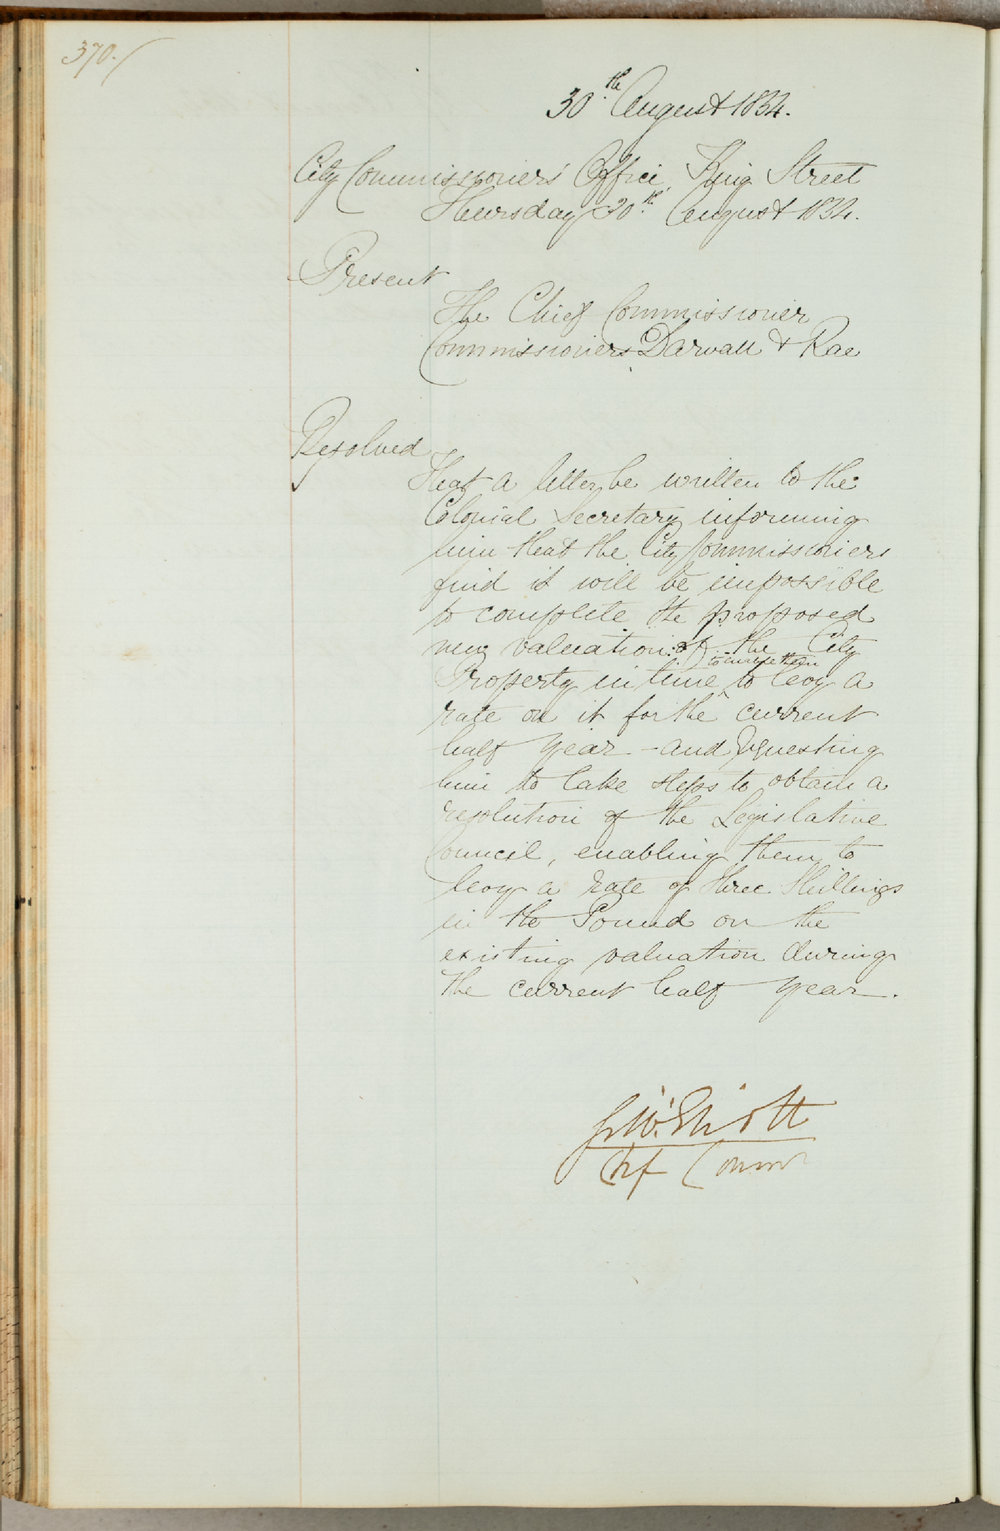 370.
30th August 1854.
City Commissioners' Office, King Street
Thursday 30th August 1854.
Present
The Chief Commissioner
Commissioners Darvall & Rae
Resolved
That a letter be written to the
Colonial Secretary informing
him that the City Commissioners
find it will be impossible
to complete the proposed
new valuation of the City
to enable them
Property in time to levy a
rate on it for the current
half year – and requesting
him to take steps to obtain a
resolution of the Legislative
Council, enabling them to
levy a rate of three Shillings
in the Pound on the
existing valuation during
the current half year.
G W. Eliott
Chf Commr